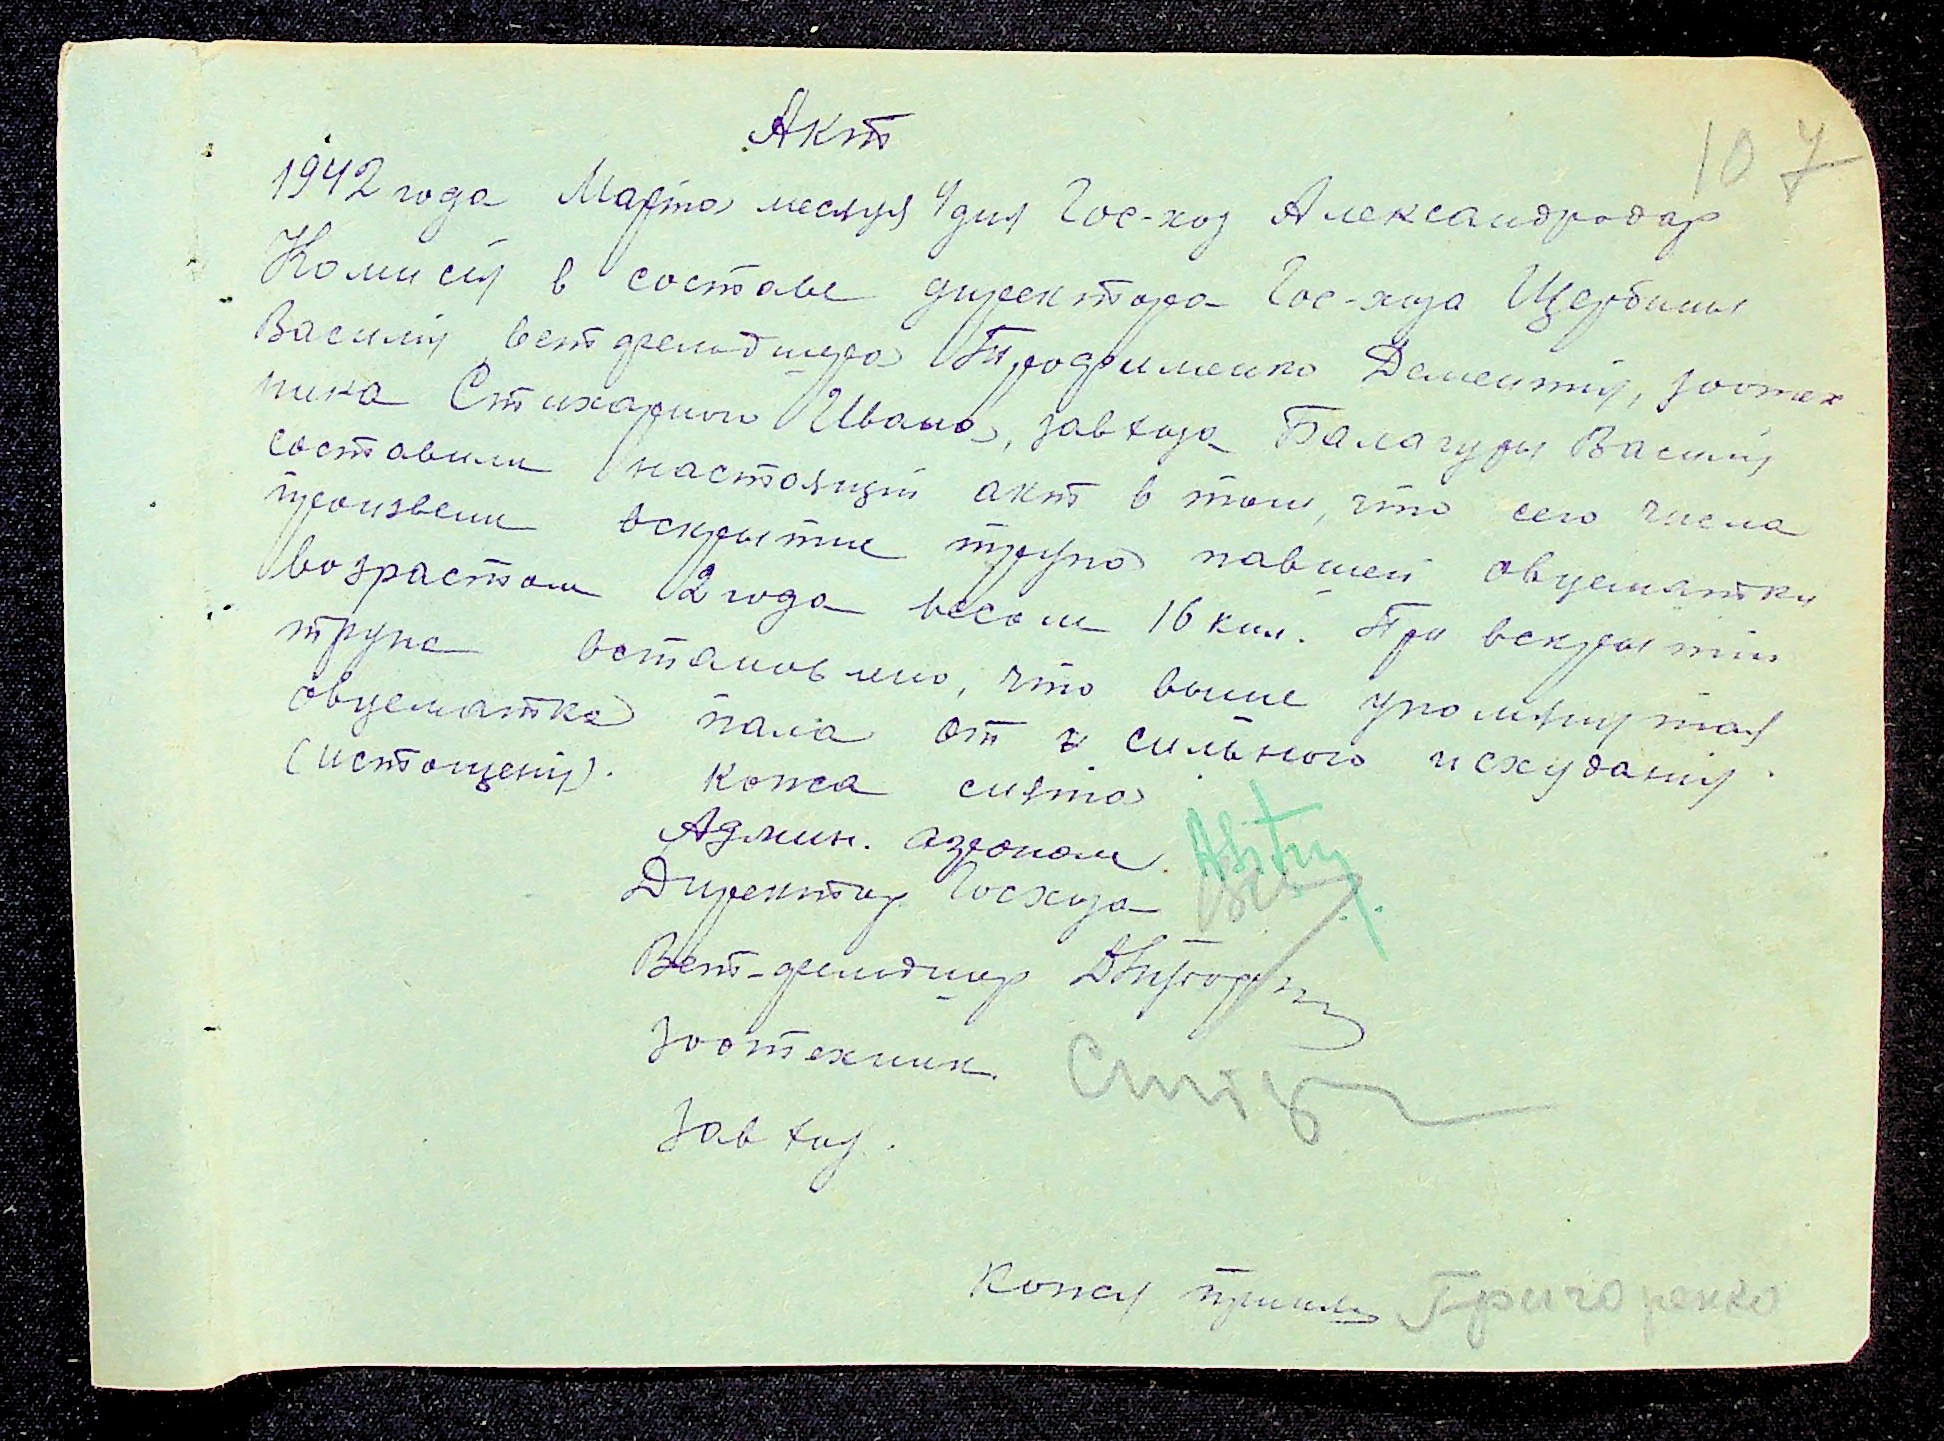 Акт
10 7
1942 года Марта месяця 4 дня Гос-хоз Александродар
Комисия в составе директора Гос-хоза Щербины
Василия, ветфельдшера Трофименко Дементия, зоотех
ника Стихарного Ивана, завхоза Балагуры Василия
составили настоящий акт в том, что сего числа
произвели вскрытие трупа павшей овцематки
возрастом 2 года весом 16 кил. При вскрытии
трупа встановлено, что выше упомянутая
овцематка пала от сильного исхудания
(истощения). Кожа снята
Админ. агроном
Директор Госхоза
Вет-фельдшер
Зоотехник.
Завхоз.
Кожу принял Григоренко